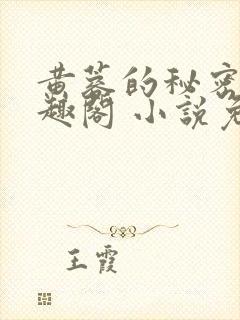 黄蓉的秘密
趣阁 小说免
王霞